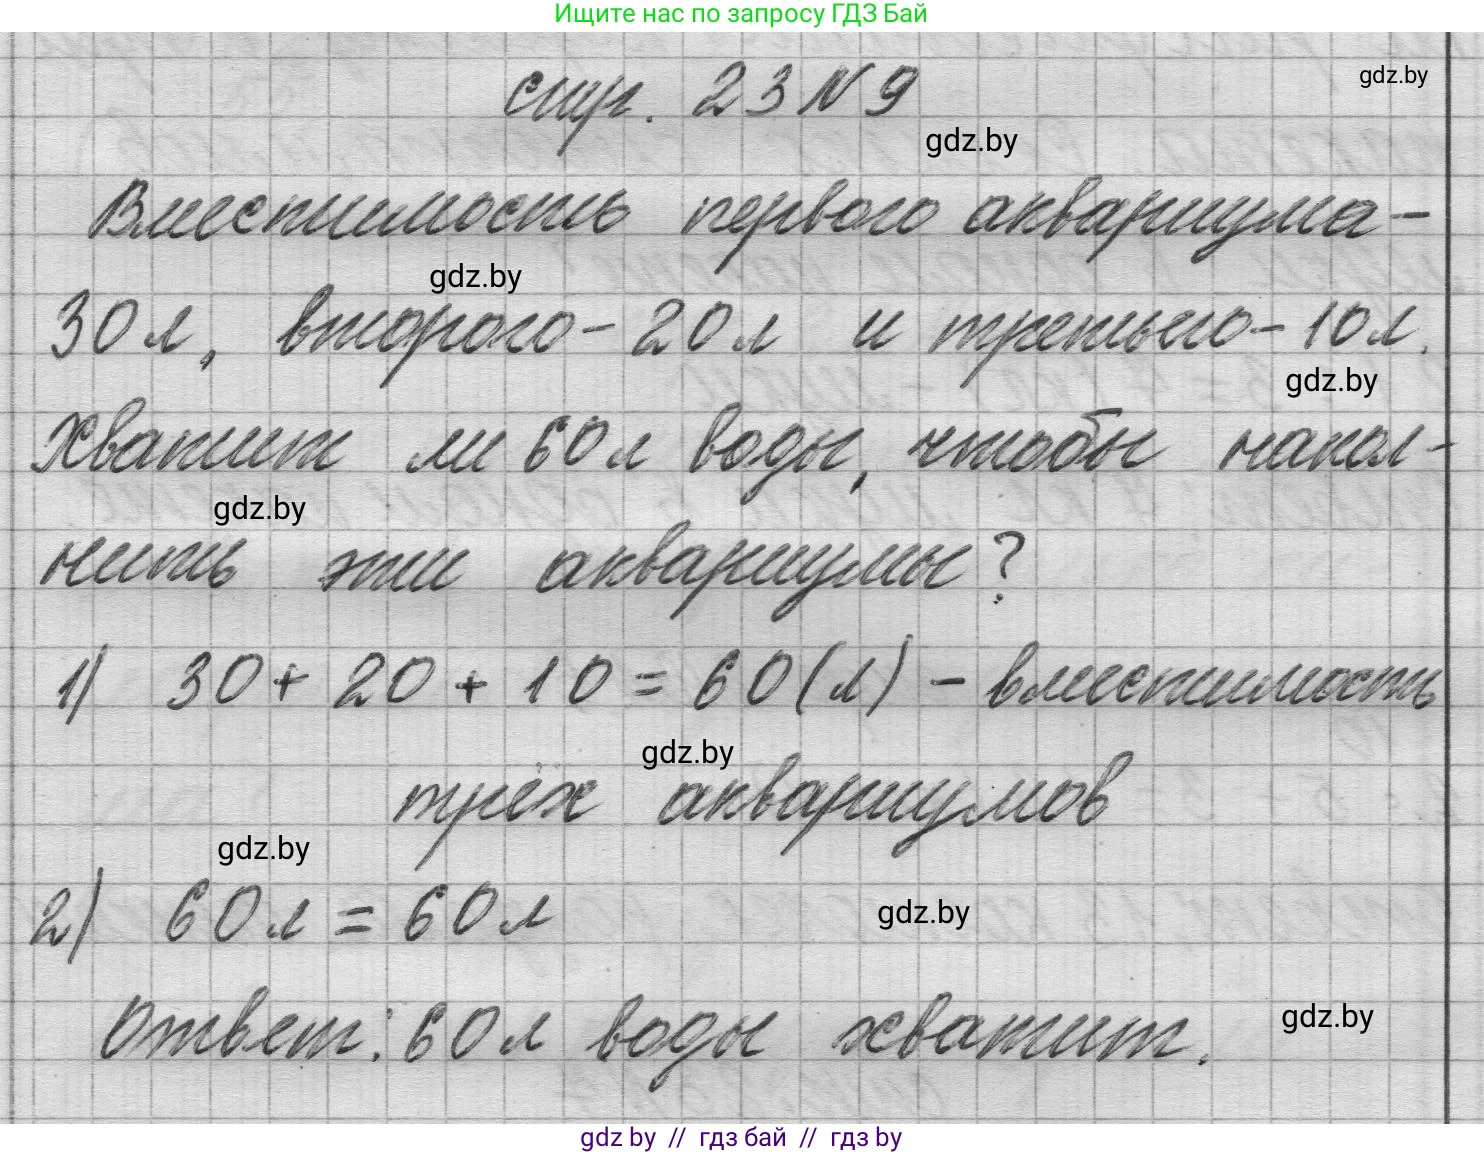 Ищите нас по запросу ГДЗ Бай
стр. 23 № 9
gdz.by
gdz.by
Вместимость первого аквариума –
gdz.by
30 л, второго – 20 л и третьего – 10 л.
gdz.by
Хватит ли 60 л воды, чтобы напол-
gdz.by
нить эти аквариумы?
1) 30 + 20 + 10 = 60 (л) – вместимость
gdz.by
трёх аквариумов
gdz.by
2) 60 л = 60 л
gdz.by
Ответ: 60 л воды хватит.
gdz.by
gdz by // гдз бай // гдз by